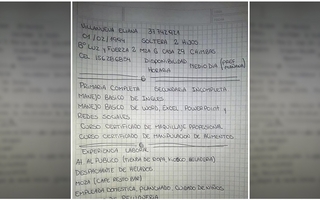 VILLANUEVA ELIANA 37742921
01/02/1994 SOLTERA 2 HIJOS
Bº LUZ Y FUERZA 2 MZA 6 CASA 29 CAIMBAS
CEL 156286804 DISPONIBILIDAD
HORARIA MEDIO DIA (PREF. MAÑANA)
PRIMARIA COMPLETA SECUNDARIA INCOMPLETA
MANEJO BASICO DE INGLES
MANEJO BASICO DE WORD, EXCEL POWERPOINT Y
REDES SOCIALES
CURSO CERTIFICADO DE MAQUILLAJE PROFESIONAL
CURSO CERTIFICADO DE MANIPULACION DE ALIMENTOS
EXPERIENCIA LABORAL
AT AL PUBLICO (TIENDA DE ROPA, KIOSCO, HELADERIA)
DESPACHANTE DE HELADOS
MOZA (CAFE RESTO BAR)
EMPLEADA DOMESTICA, PLANCHADO, CUIDADO DE NIÑOS
DE PELUQUERIA